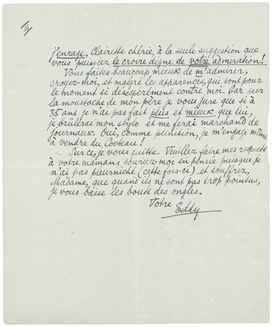 j'enrage, Clairette chérie, à la seule suggestion que
vous puissiez le croire digne de votre admiration!
Vous faites beaucoup mieux de m'admirer,
croyez-moi, et malgré les apparences, qui sont pour
le moment si désespérément contre moi. Car sur
la moustache de mon père je vous jure que si à
35 ans je n'ai pas fait plus et mieux que lui,
je brûlerai mon stylo et me ferai marchand de
journaux. Oui, comme punition, je m'engage même
à vendre du Cocteau!
Sur ce, je vous quitte. Veuillez faire mes respects
à votre maman, souriez-moi en pensée puisque je
n'ai pas pleurniché (cette fois-ci) et souffrez,
Madame, que quand ils ne sont pas trop pointus,
je vous baise les bouts des ongles.
Votre
Eddy